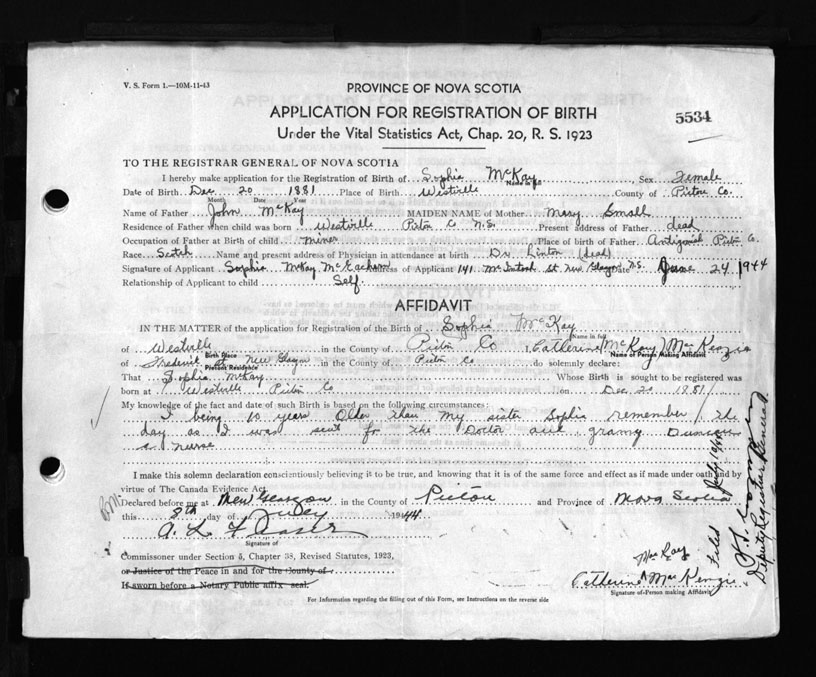 V. S. Form 1.—10M-11-43
PROVINCE OF NOVA SCOTIA
APPLICATION FOR REGISTRATION OF BIRTH
5534
Under the Vital Statistics Act, Chap. 20, R. S. 1923
TO THE REGISTRAR GENERAL OF NOVA SCOTIA
I hereby make application for the Registration of Birth of Sophia McKay Sex Female
Name in full
Date of Birth Dec 20 1881 Place of Birth Westville County of Pictou Co.
Month Date Year
Name of Father John McKay MAIDEN NAME of Mother Mary Small
Residence of Father when child was born Westville Pictou Co N.S. Present address of Father dead
Occupation of Father at Birth of child miner Place of Birth of Father Antigonish Pictou Co.
Race Scotch Name and present address of Physician in attendance at birth Dr Linton (dead)
Signature of Applicant Sophia McKay McEachern Address of Applicant 141 McIntosh St. New Glasgow N.S. Date June 24 1944
Relationship of Applicant to child Self.
AFFIDAVIT
IN THE MATTER of the application for Registration of the Birth of Sophia McKay
Name in full
of Westville in the County of Pictou Co I, Catherine (McKay) MacKenzie
Birth Place Name of Person Making Affidavit
of Frederick St New Glasgow in the County of Pictou Co do solemnly declare:
Present Residence
That Sophia McKay Whose Birth is sought to be registered was
born at Westville Pictou Co on Dec 20 1881
My knowledge of the fact and date of such Birth is based on the following circumstances:
I being 10 years older than my sister Sophia remember the
day as I was sent for the Doctor and granny Duncan
a nurse
I make this solemn declaration conscientiously believing it to be true, and knowing that it is of the same force and effect as if made under oath and by
virtue of The Canada Evidence Act.
Declared before me at New Glasgow in the County of Pictou and Province of Nova Scotia
this 8th day of July 1944
A. L. Fraser
Signature of
Commissioner under Section 5, Chapter 38, Revised Statutes, 1923,
or Justice of the Peace in and for the County of
If sworn before a Notary Public affix seal.
MacKay
Catherine MacKenzie
Signature of Person making Affidavit
For Information regarding the filling out of this Form, see Instructions on the reverse side
Filed July 19/44
Deputy Registrar General